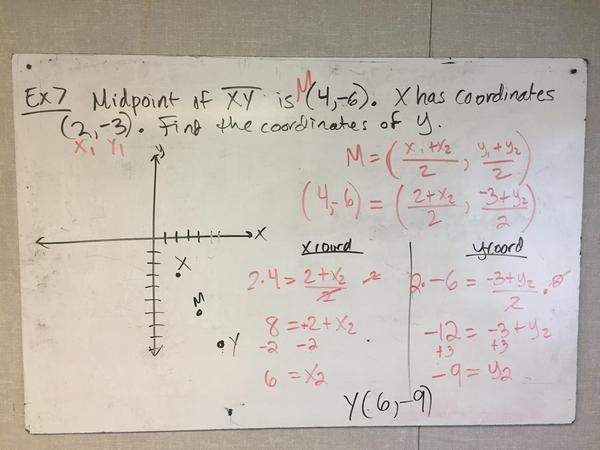 Ex7 Midpoint of XY is M(4,-6). X has coordinates
(2,-3). Find the coordinates of Y.
X₁ Y₁
M = (x₁+x₂/2, y₁+y₂/2)
(4,-6) = (2+x₂/2, -3+y₂/2)
y
X
X
M
Y
xcoord
2·4 = 2+x₂/2 ·2
8 = +2+x₂
-2 -2
6 = x₂
ycoord
2·-6 = -3+y₂/2 ·2
-12 = -3+y₂
+3 +3
-9 = y₂
Y(6,-9)